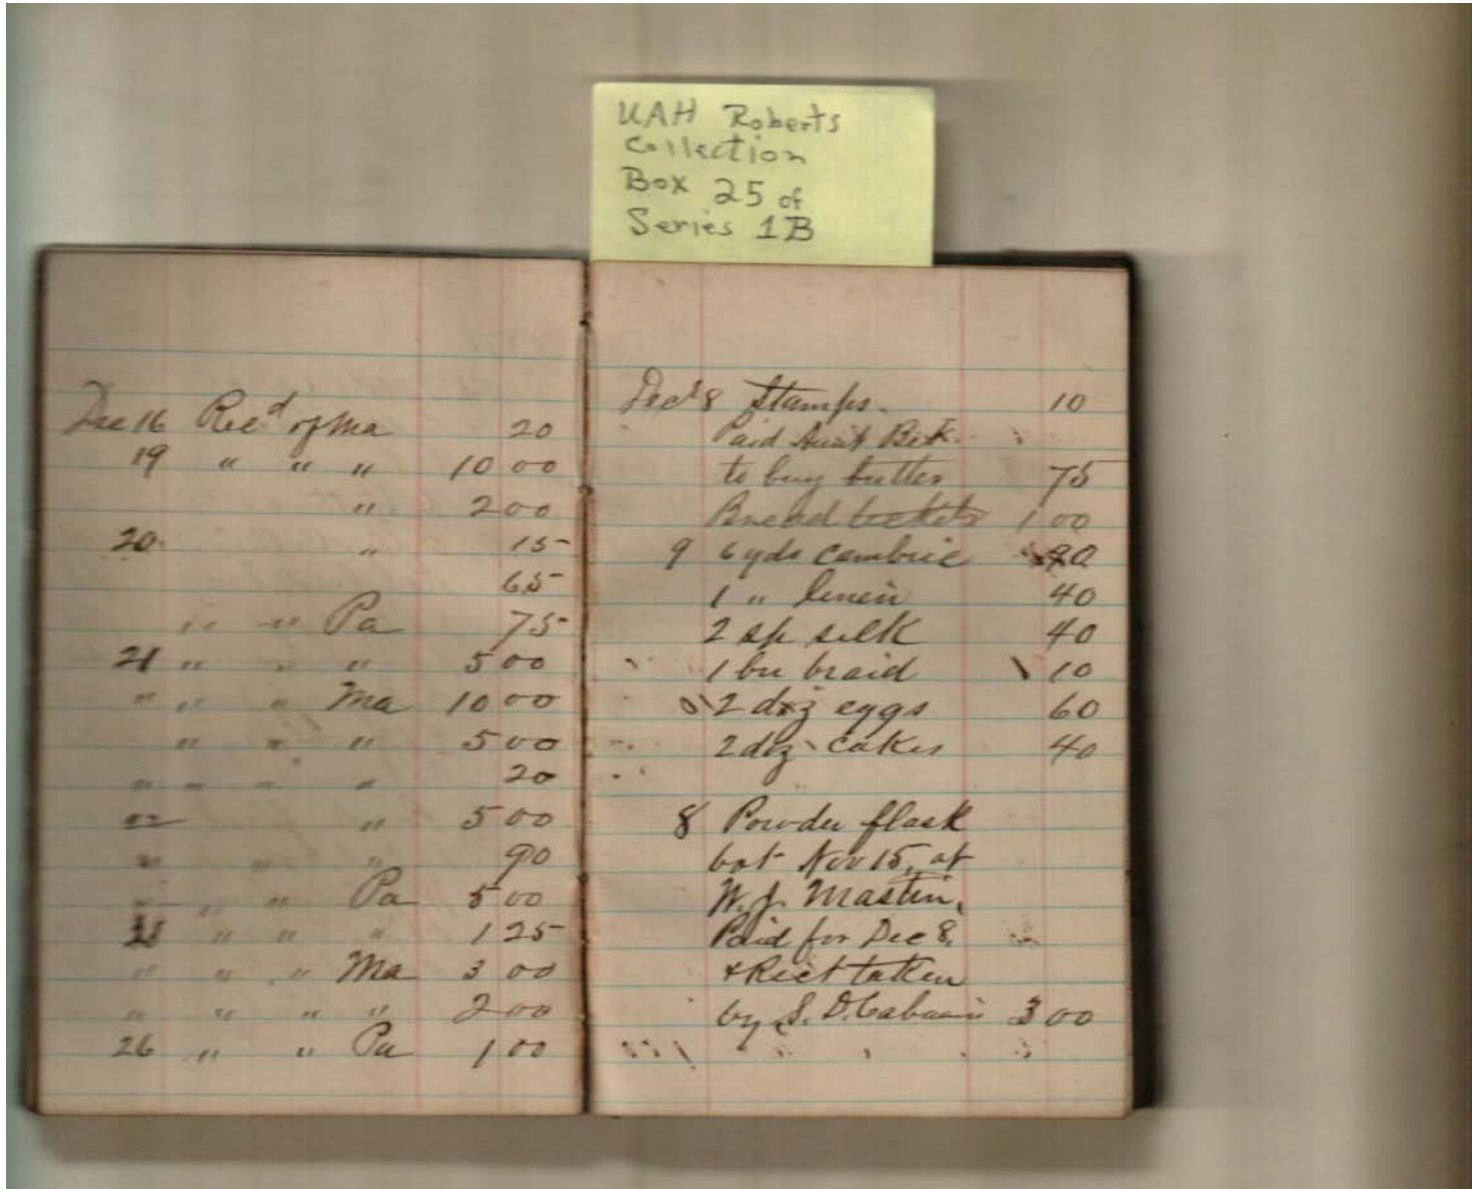 UAH Roberts
Collection
Box 25 of
Series 1B
Dec 16 Recd of Ma 20
19 " " " 10 00
" 2 00
20 " 15
65
" " Pa 75
21 " " " 5 00
" " " Ma 10 00
" " " 5 00
" " " " 20
22 " 5 00
" " " 90
" " " Pa 5 00
" " " 1 25
" " " Ma 3 00
" " " " 2 00
26 " " Pa 1 00
Dec 8 Stamps. 10
Paid Aunt Bek.
to buy butter 75
Bread tickets 1 00
9 6 yds cambric
1 " linen 40
2 sp silk 40
1 bu braid 10
2 doz eggs 60
2 doz cakes 40
8 Powder flask
bot Nov 15, at
W. J. Mastin,
Paid for Dec 8,
& Rect taken
by S. D. Cabaniss 3 00